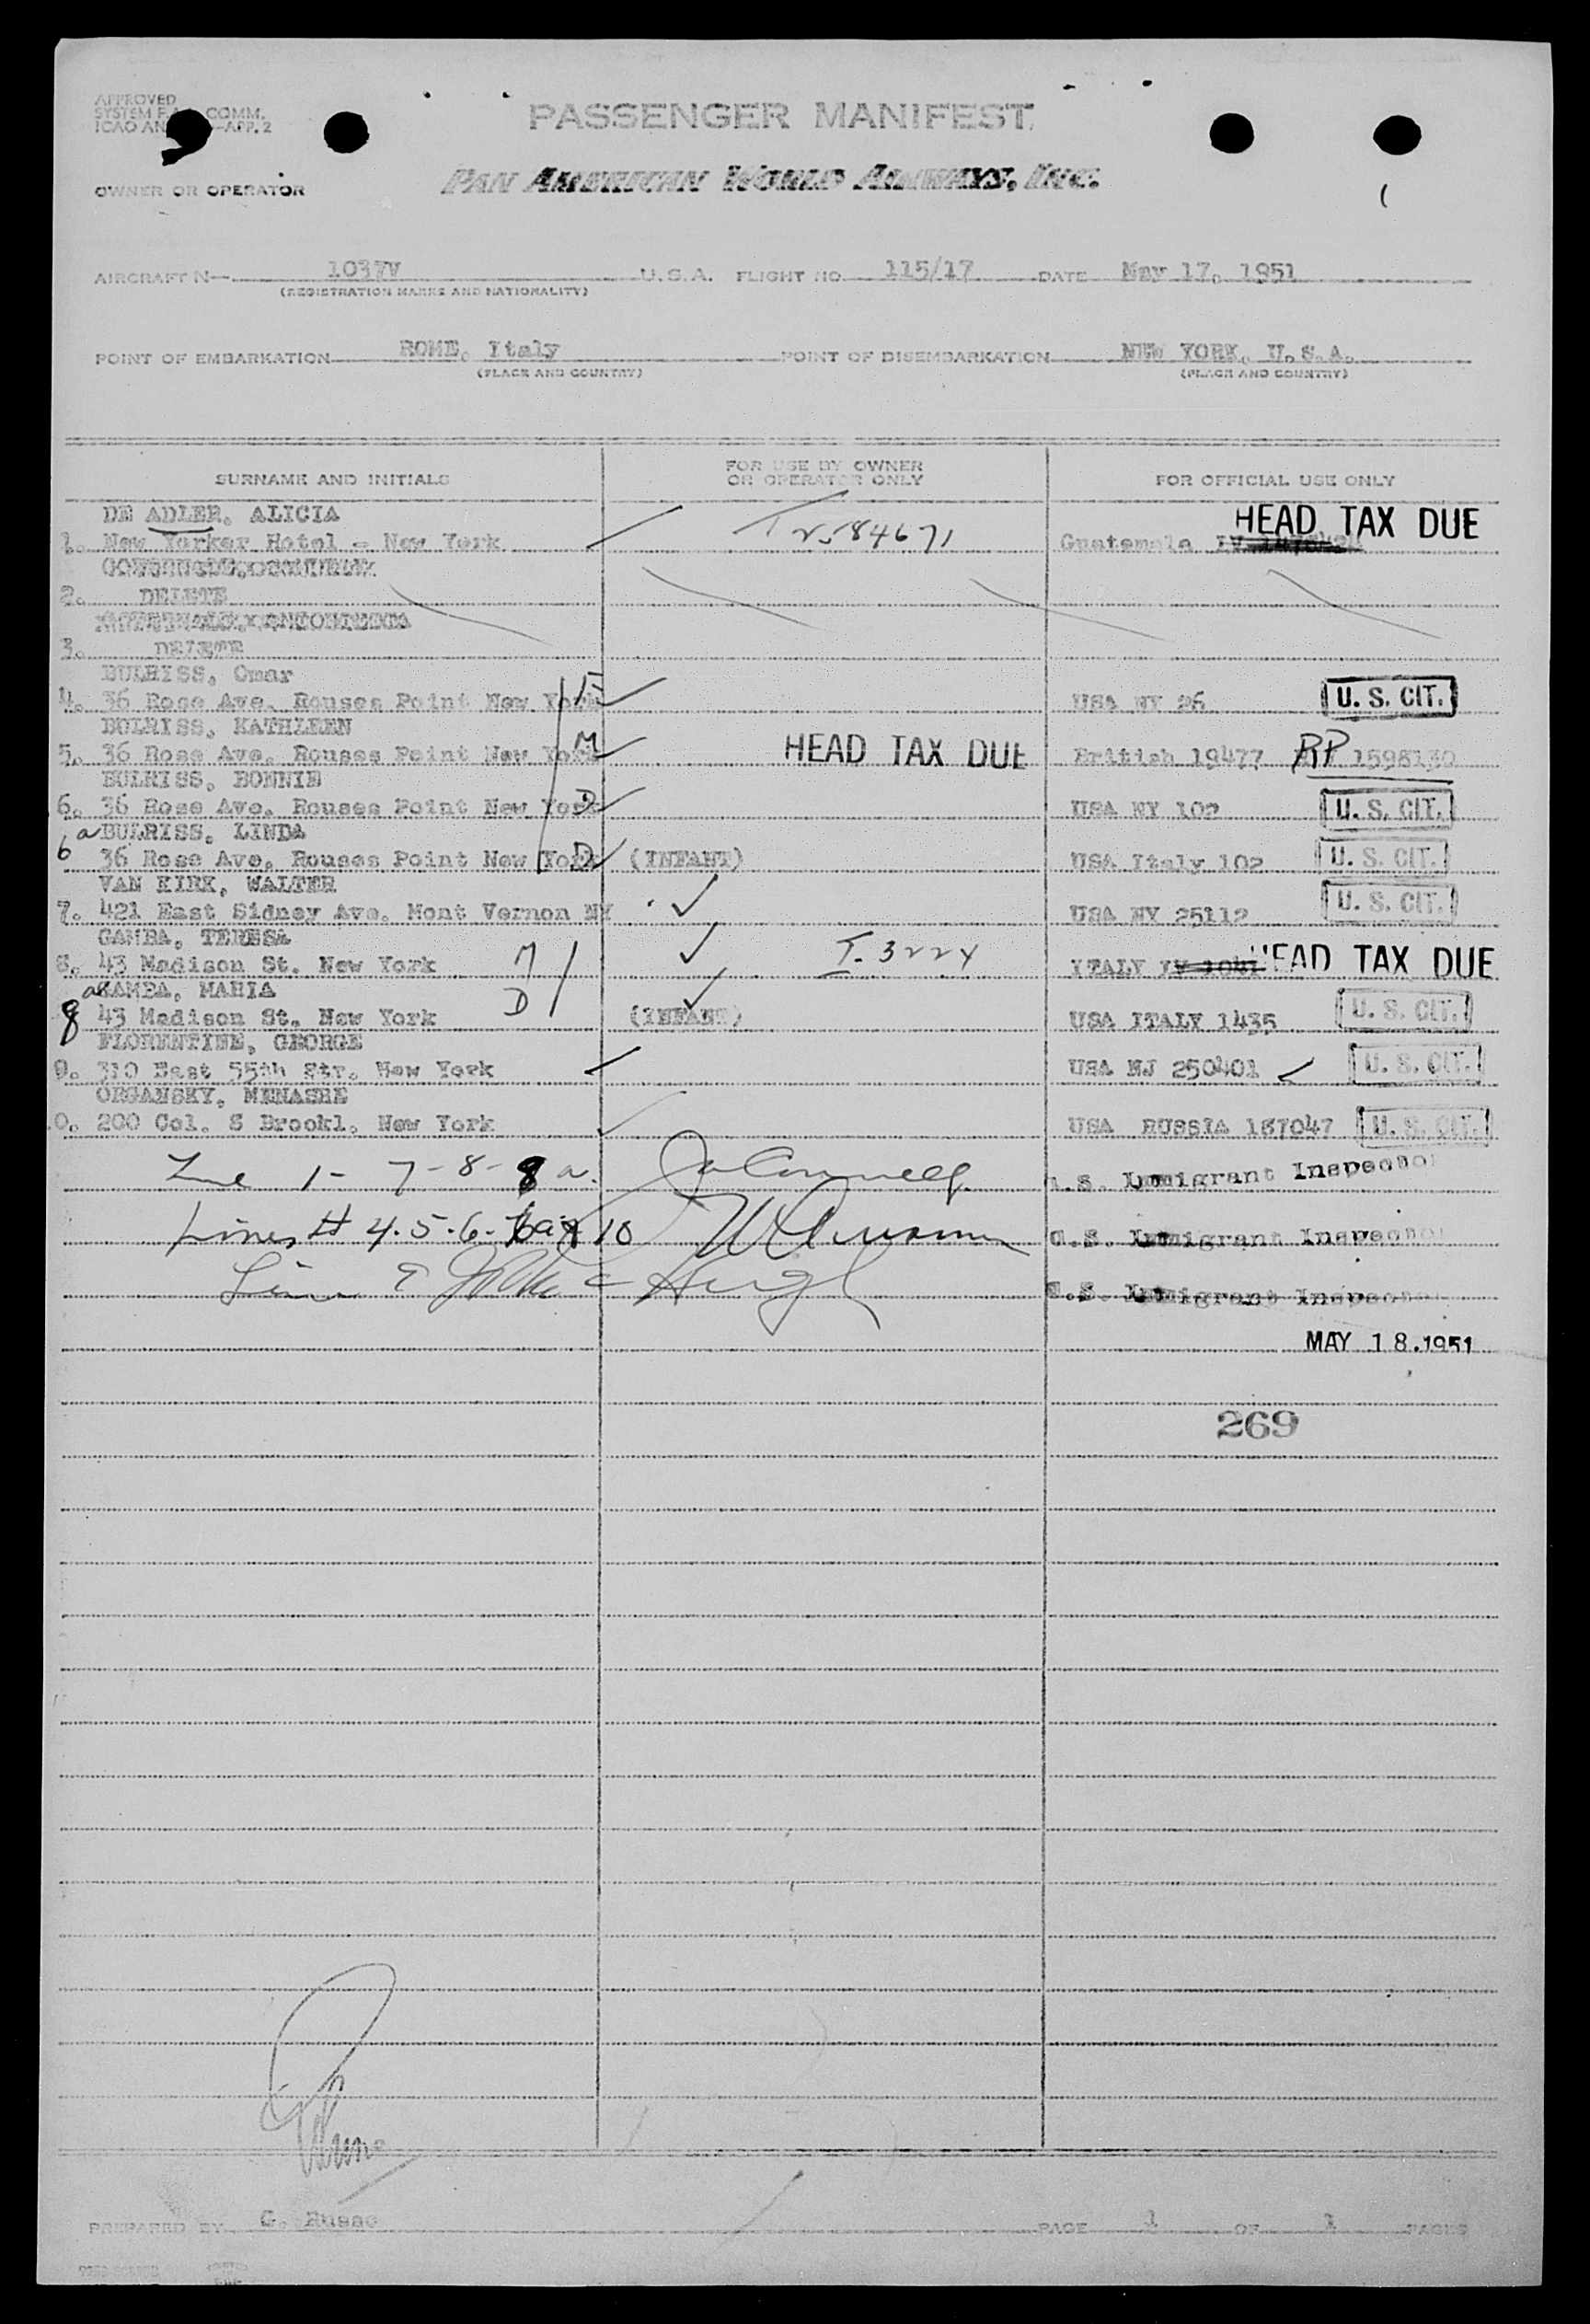 APPROVED
SYSTEM F.A. COMM.
ICAO AN —APP. 2
PASSENGER MANIFEST
OWNER OR OPERATOR PAN AMERICAN WORLD AIRWAYS, INC.
AIRCRAFT N— 1037V U.S.A. FLIGHT NO 115/17 DATE May 17, 1951
(REGISTRATION MARKS AND NATIONALITY)
POINT OF EMBARKATION ROME, Italy POINT OF DISEMBARKATION NEW YORK, U.S.A.
(PLACE AND COUNTRY) (PLACE AND COUNTRY)
SURNAME AND INITIALS FOR USE BY OWNER OR OPERATOR ONLY FOR OFFICIAL USE ONLY
DE ADLER, ALICIA HEAD TAX DUE
1. New Yorker Hotel - New York Guatemala
2. DELETE
3. DELETE
BULRISS, Omar
4. 36 Rose Ave. Rouses Point New York F USA NY 26 U. S. CIT.
BULRISS, KATHLEEN
5. 36 Rose Ave. Rouses Point New York M HEAD TAX DUE British 19477 RP 1598130
BULRISS, BONNIE
6. 36 Rose Ave. Rouses Point New York D USA NY 102 U. S. CIT.
6a BULRISS, LINDA
36 Rose Ave. Rouses Point New York D (INFANT) USA Italy 102 U. S. CIT.
VAN KIRK, WALTER
7. 421 East Sidney Ave. Mont Vernon NY USA NY 25112 U. S. CIT.
GAMBA, TERESA
8. 43 Madison St. New York M I-3224 ITALY HEAD TAX DUE
8a GAMBA, MARIA
43 Madison St. New York D (INFANT) USA ITALY 1435 U. S. CIT.
FLORENTINE, GEORGE
9. 310 East 55th Str. New York USA NJ 250401 U. S. CIT.
ORGANSKY, MENASHE
0. 200 Col. S Brookl. New York USA RUSSIA 187047 U. S. CIT.
Line 1 - 7 - 8 - 8a. U.S. Immigrant Inspector
Lines # 4.5.6. 10 U.S. Immigrant Inspector
U.S. Immigrant Inspector
MAY 18.1951
269
PREPARED BY G. Russo PAGE 1 OF 1 PAGES